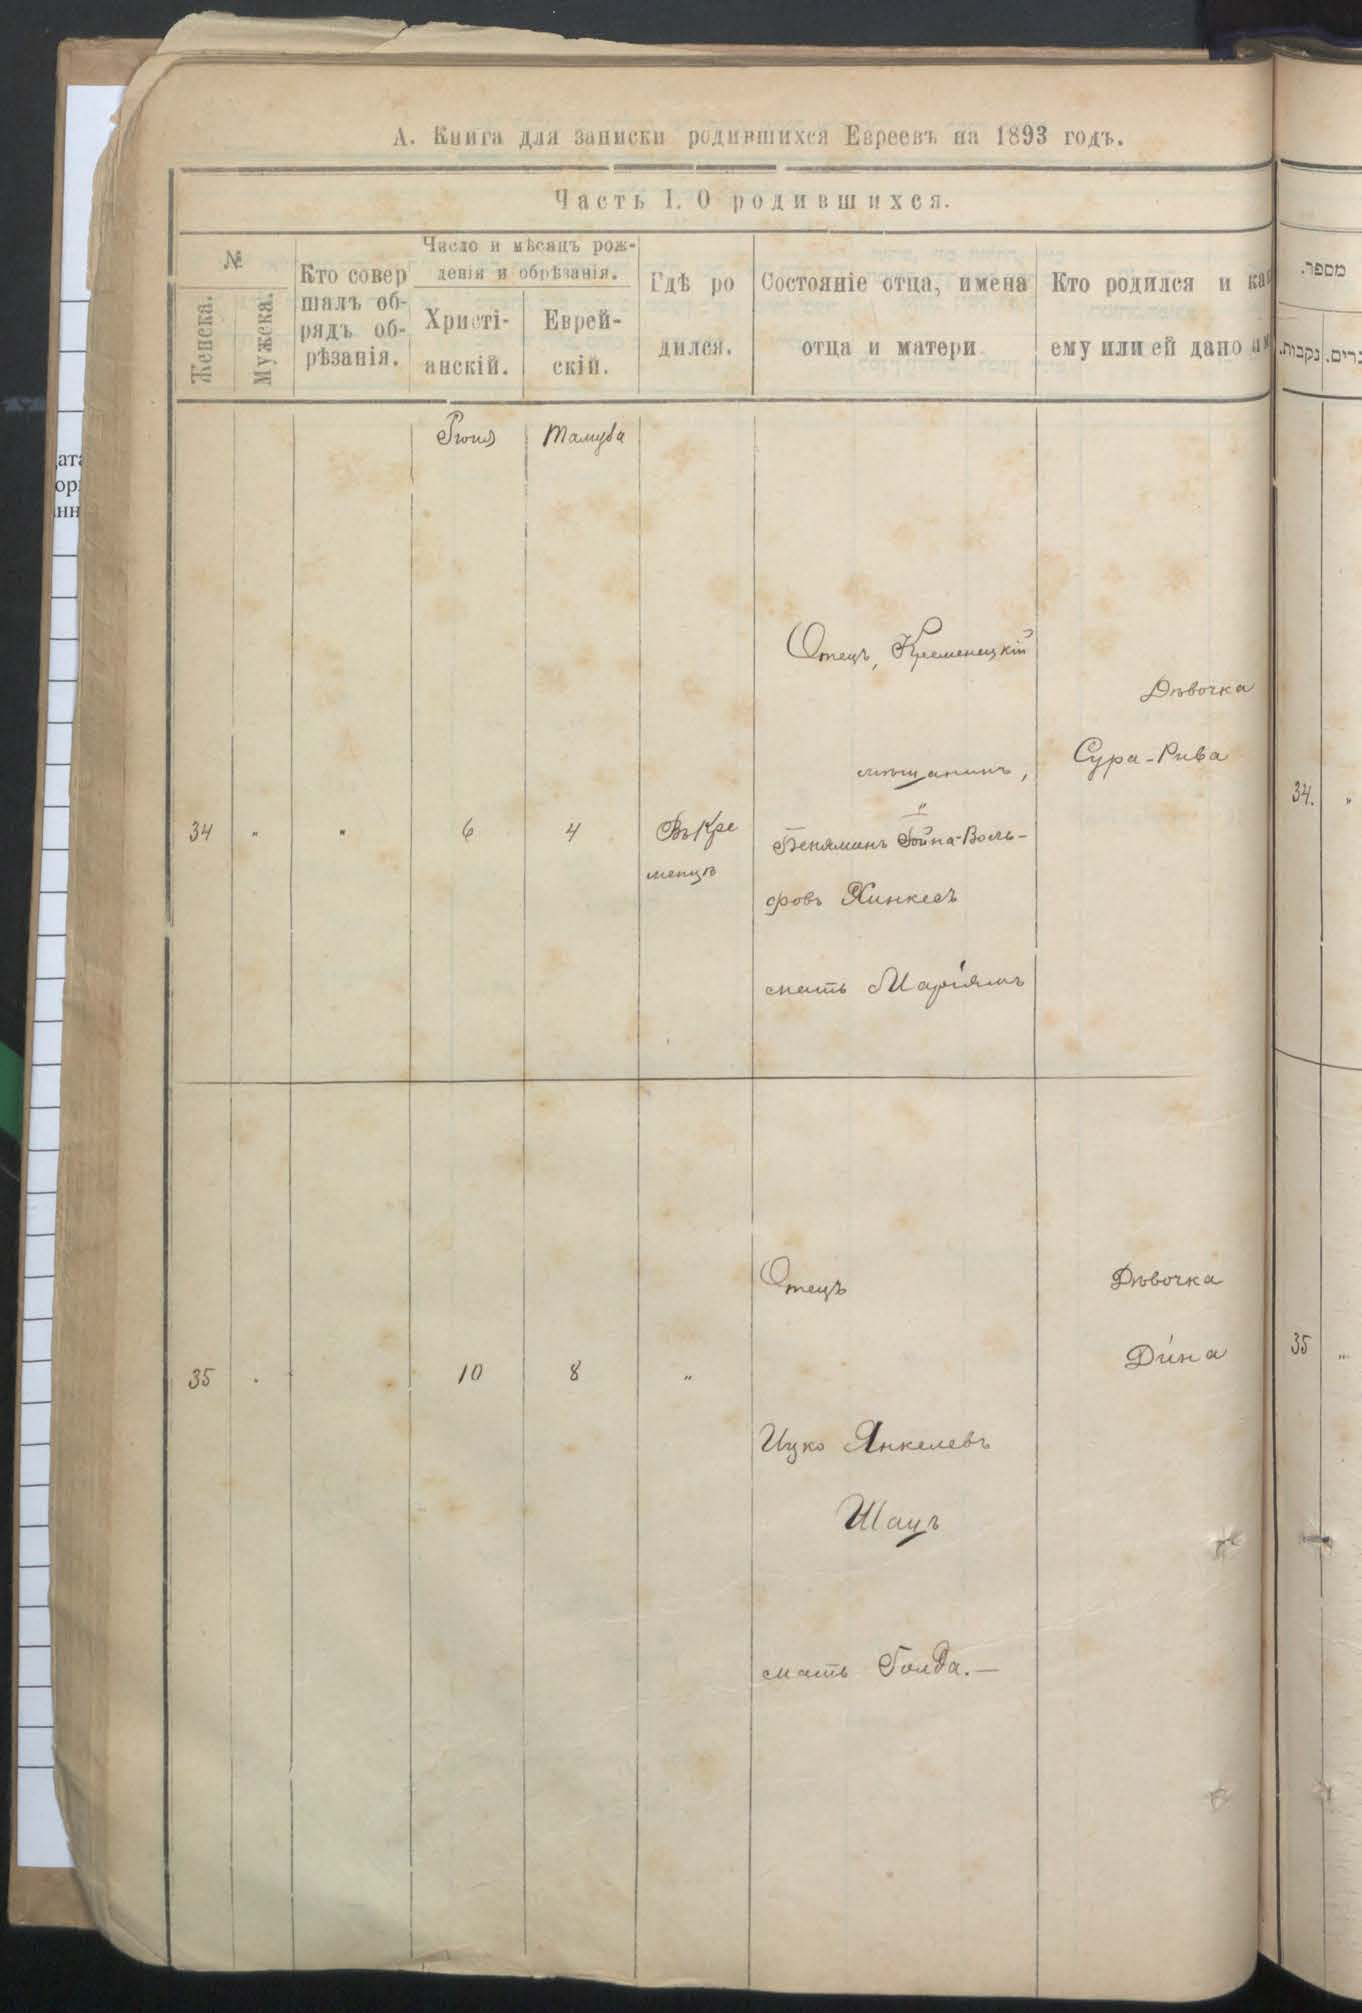 А. Книга для записки родившихся Евреевъ на 1893 годъ.
Часть I. О родившихся.
№
Женска.
Мужеска.
Кто совер
шалъ об-
рядъ об-
рѣзанія.
Число и мѣсяцъ рож-
денія и обрѣзанія.
Христі-
анскій.
Еврей-
скій.
Гдѣ ро
дился.
Состояніе отца, имена
отца и матери
Кто родился и как
ему или ей дано им
מספר.
נקבות.
כרים.
ата
ор
нн
Іюня
Тамуза
34 " " 6 4
Въ Кре
менцѣ
Отецъ, Кременецкій
мѣщанинъ,
Беняминъ Іойна-Воль-
фовъ Хинкесъ
мать Маріямъ
Дѣвочка
Сура-Рива
34. "
35 " 10 8 "
Отецъ
Ицко Янкелевъ
Шацъ
мать Голда.—
Дѣвочка
Дина
35 "